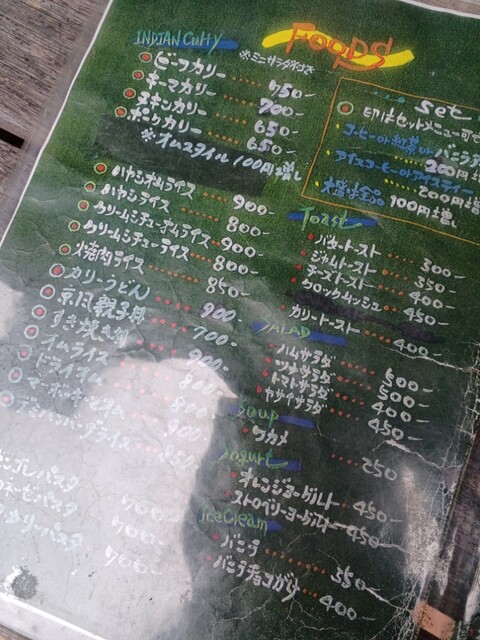 Foods
INDIAN Curry
※ミニサラダ付き
ビーフカリー 750-
キーマカリー 700-
チキンカリー 650-
ポークカリー 650-
※オムスタイル 100円増し
ハヤシオムライス 900-
ハヤシライス 800-
クリームシチューオムライス 900-
クリームシチューライス 800-
焼肉ライス 850-
カリーうどん
京風親子丼 900
すき焼き丼 700-
オムライス 900-
ドライ
デミハンバーグライス
パスタ
パスタ 700-
パスタ 700-
Set
印はセットメニュー可
コーヒーor紅茶orバニラ
200円増
アイスコーヒーorアイスティー
200円増
大盛 100円増し
Toast
バタートースト 300-
ジャムトースト 350-
チーズトースト 400-
クロックムッシュ 450-
カリートースト 400-
SALAD
ハムサラダ 500-
ツナサラダ 500-
トマトサラダ 400-
ヤサイサラダ 450-
Soup
ワカメ 250
Yogurt
オレンジヨーグルト 450-
ストロベリーヨーグルト 450-
Ice Cream
バニラ 350-
バニラチョコがけ 400-